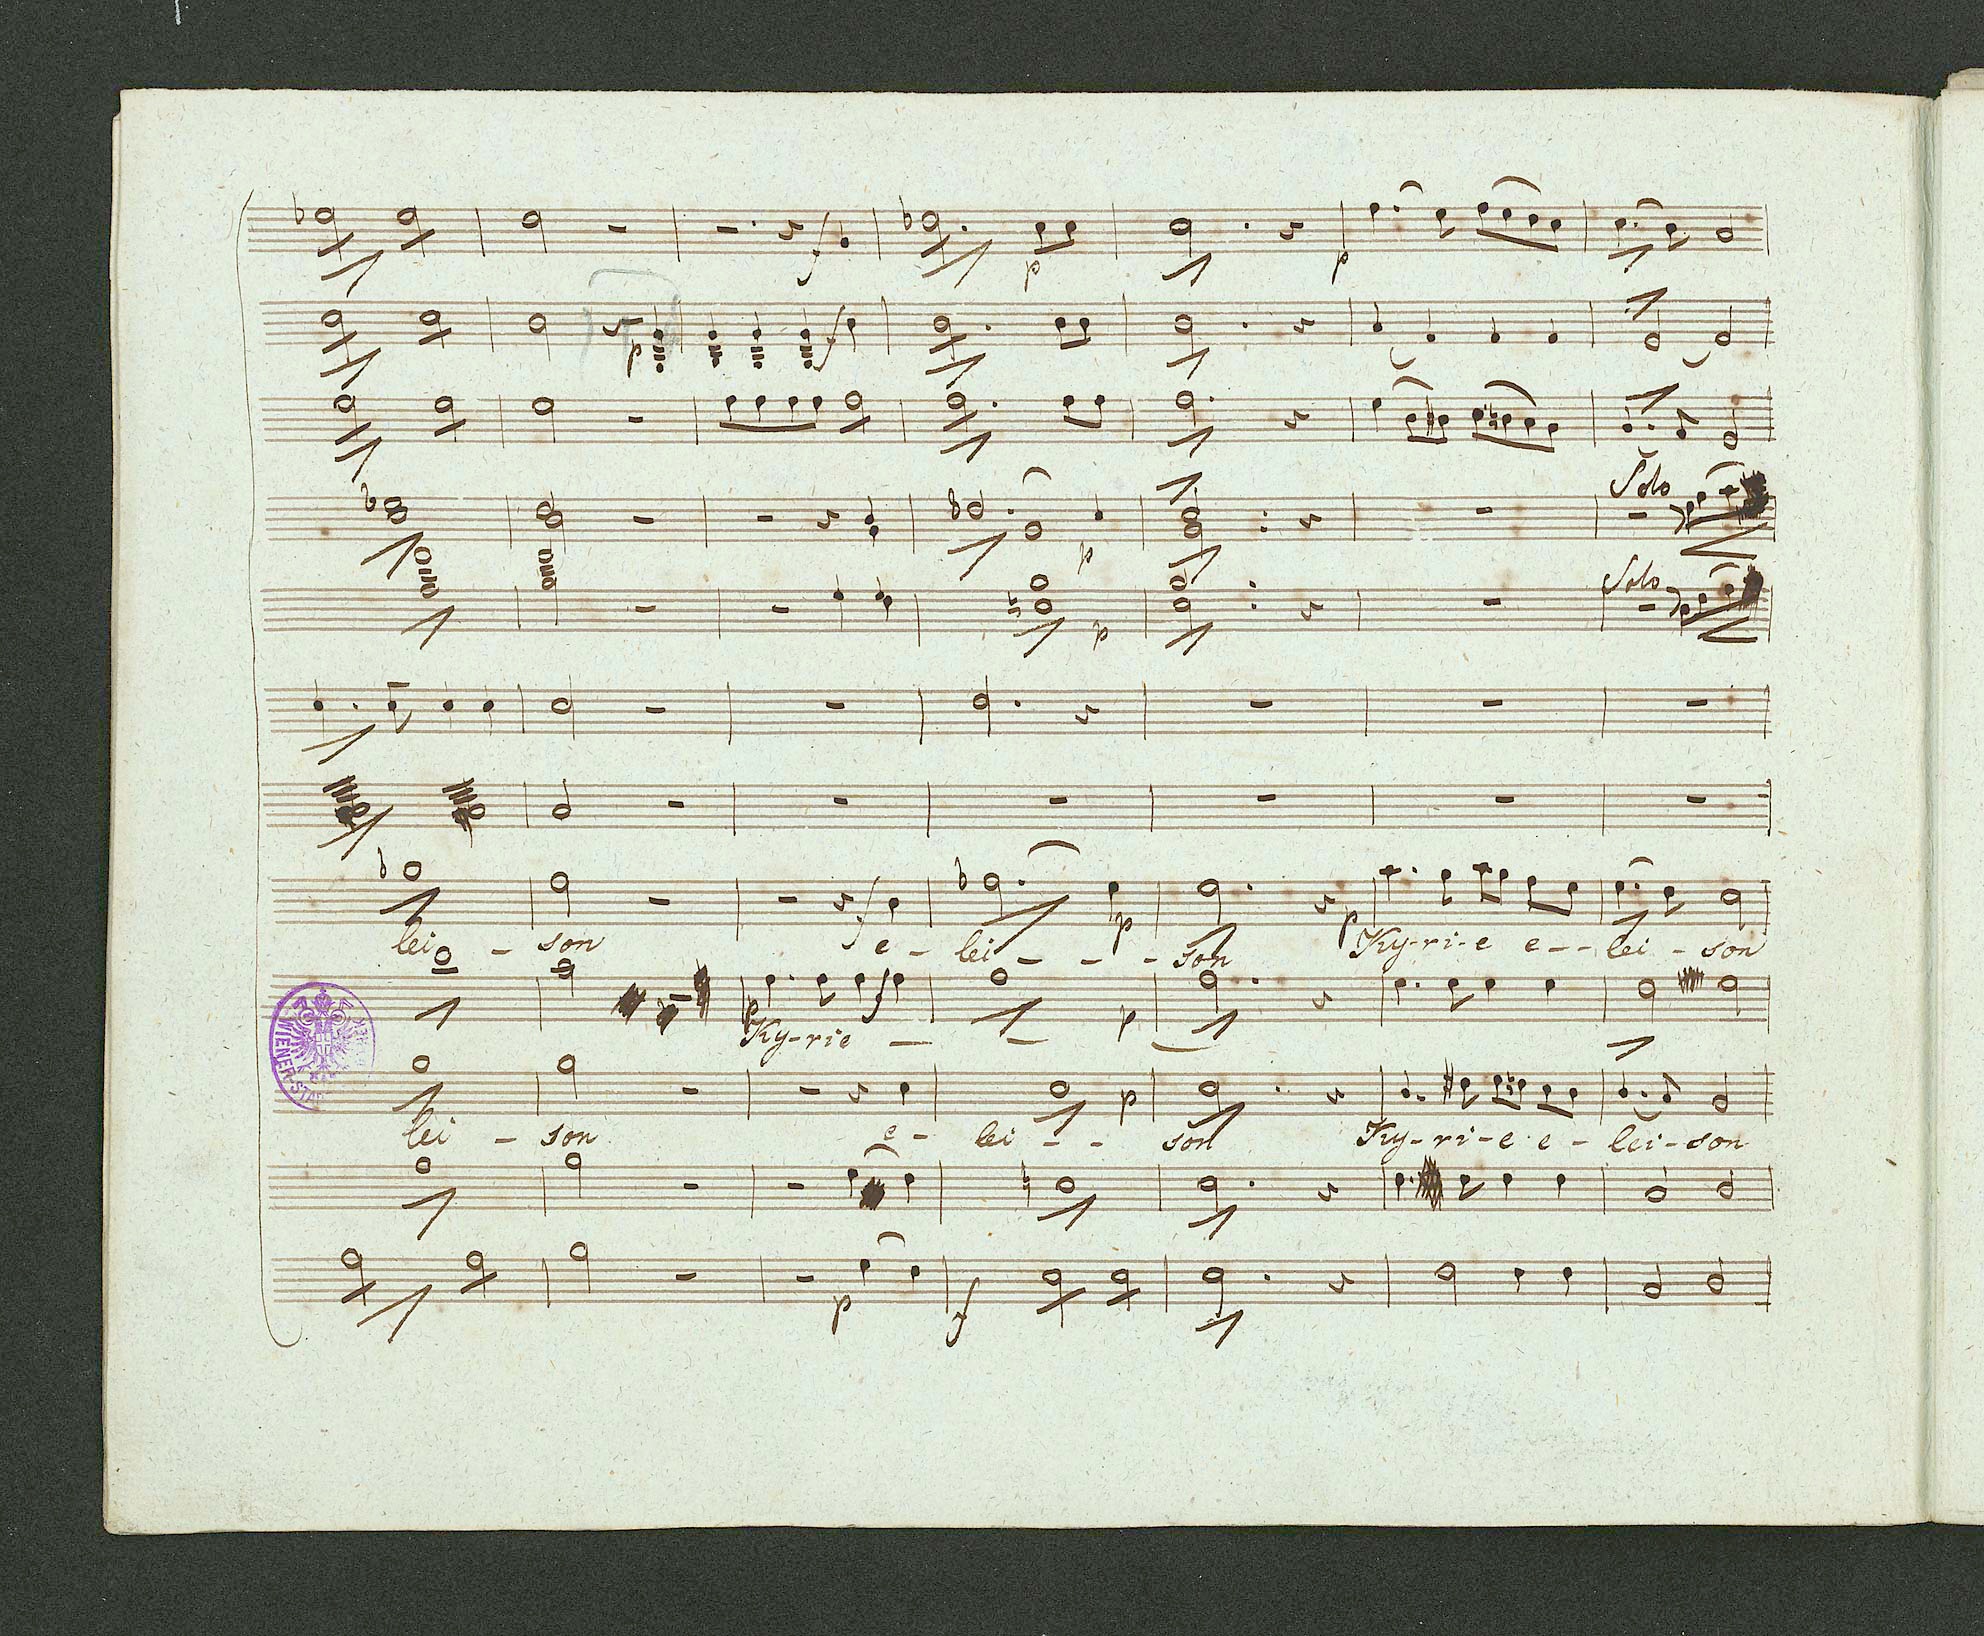 f
p
p
p
f
Solo
p
Solo
p
f
p
p
lei - son e - lei - - - son Ky-ri-e e -- lei - son
p
f
p
Ky-rie — —
p
lei - son e - lei - - son Ky-ri-e e - lei-son
p
f
WIENER-STA